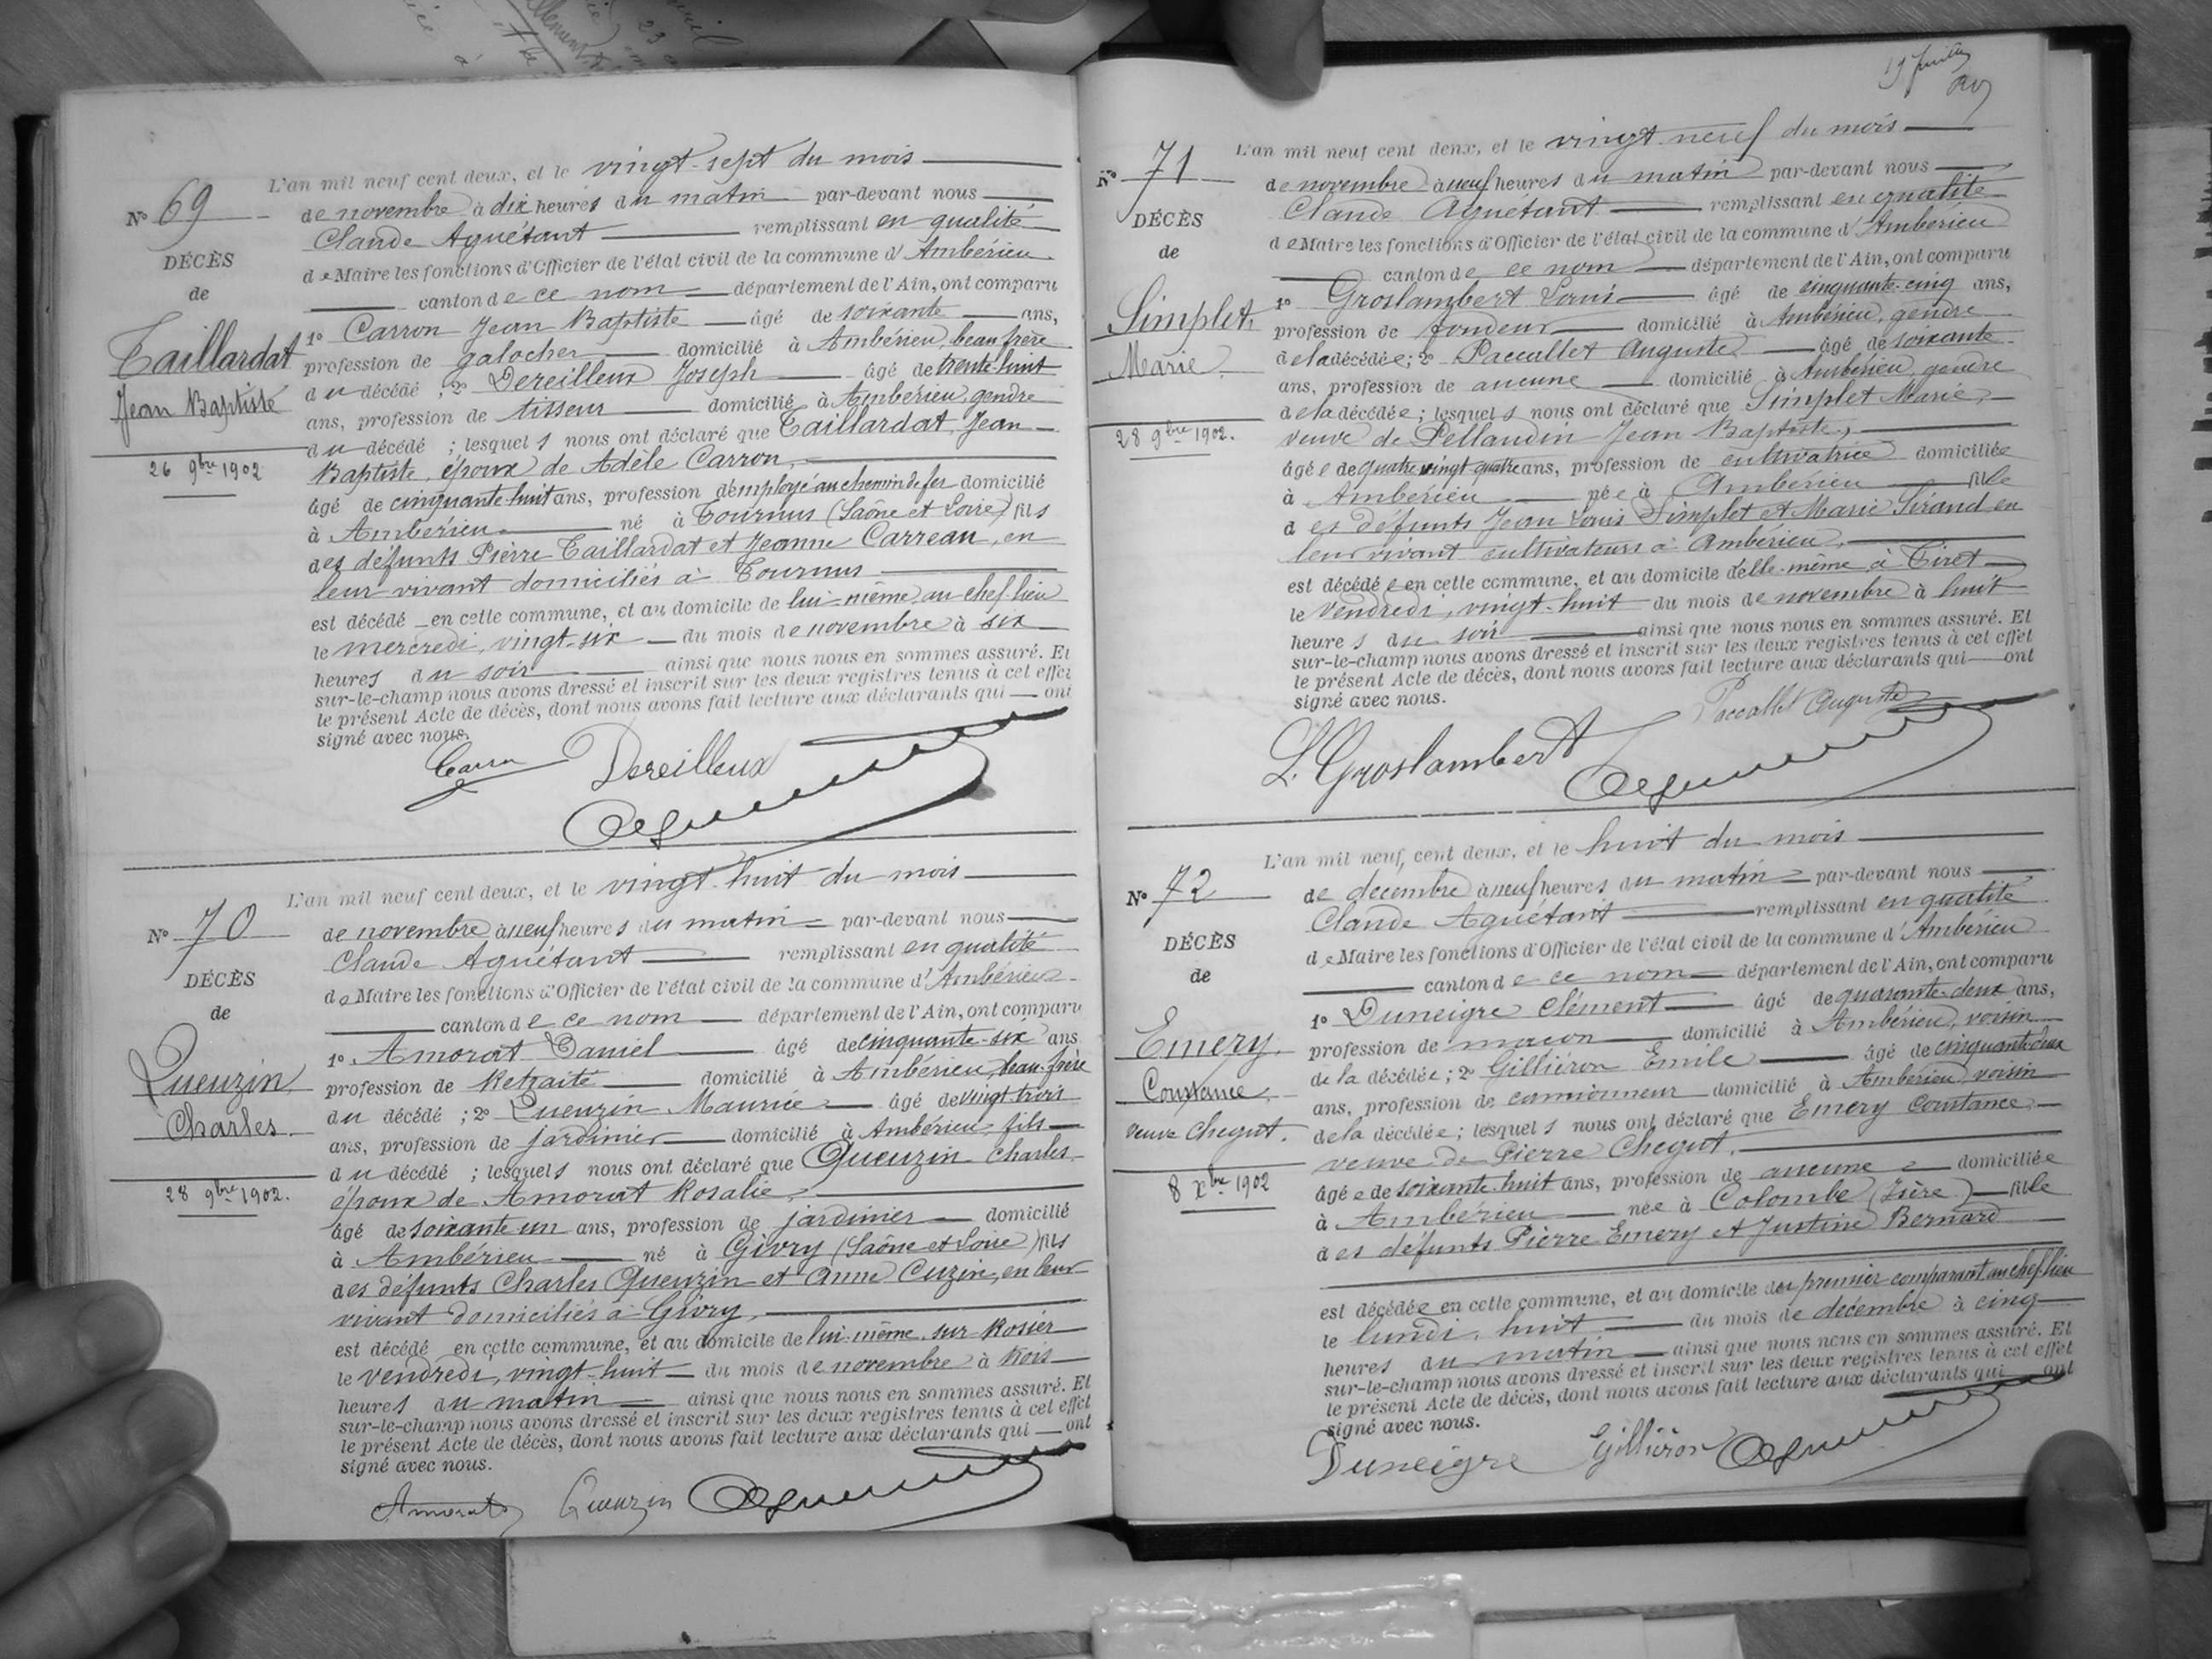 N° 69
DÉCÈS
de
Taillardat
Jean Baptiste
26 9bre 1902
L'an mil neuf cent deux, et le vingt-sept du mois
de novembre à dix heures du matin par-devant nous
Claude Aguétant remplissant en qualité
de Maire les fonctions d'Officier de l'état civil de la commune d'Ambérieu
canton de ce nom département de l'Ain, ont comparu
1° Carron Jean Baptiste âgé de soixante ans,
profession de galocher domicilié à Ambérieu, beau-frère
du décédé ; 2° Dereilleux Joseph âgé de trente-huit
ans, profession de tisseur domicilié à Ambérieu, gendre
du décédé ; lesquels nous ont déclaré que Taillardat Jean
Baptiste, époux de Adèle Carron,
âgé de cinquante-huit ans, profession d'employé au chemin de fer domicilié
à Ambérieu né à Tournus (Saône et Loire) fils
des défunts Pierre Taillardat et Jeanne Carreau, en
leur vivant domiciliés à Tournus
est décédé en cette commune, et au domicile de lui-même, au chef-lieu
le mercredi, vingt-six du mois de novembre à six
heures du soir ainsi que nous nous en sommes assuré. Et
sur-le-champ nous avons dressé et inscrit sur les deux registres tenus à cet effet
le présent Acte de décès, dont nous avons fait lecture aux déclarants qui ont
signé avec nous.
Dereilleux
N° 70
DÉCÈS
de
Queuzin
Charles
28 9bre 1902.
L'an mil neuf cent deux, et le vingt-huit du mois
de novembre à neuf heures du matin par-devant nous
Claude Aguétant remplissant en qualité
de Maire les fonctions d'Officier de l'état civil de la commune d'Ambérieu
canton de ce nom département de l'Ain, ont comparu
1° Amorat Daniel âgé de cinquante-six ans
profession de Retraité domicilié à Ambérieu, beau-frère
du décédé ; 2° Queuzin Maurice âgé de vingt trois
ans, profession de jardinier domicilié à Ambérieu fils
du décédé ; lesquels nous ont déclaré que Queuzin Charles
époux de Amorat Rosalie,
âgé de soixante un ans, profession de jardinier domicilié
à Ambérieu né à Givry (Saône et Loire) fils
des défunts Charles Queuzin et Anne Cuzin, en leur
vivant domiciliés à Givry,
est décédé en cette commune, et au domicile de lui-même, sur Rosier
le vendredi, vingt-huit du mois de novembre à trois
heures du matin ainsi que nous nous en sommes assuré. Et
sur-le-champ nous avons dressé et inscrit sur les deux registres tenus à cet effet
le présent Acte de décès, dont nous avons fait lecture aux déclarants qui ont
signé avec nous.
Amorat Queuzin
N° 71
DÉCÈS
de
Simplet
Marie
28 9bre 1902.
L'an mil neuf cent deux, et le vingt-neuf du mois
de novembre à neuf heures du matin par-devant nous
Claude Aguétant remplissant en qualité
de Maire les fonctions d'Officier de l'état civil de la commune d'Ambérieu
canton de ce nom département de l'Ain, ont comparu
1° Groslambert Louis âgé de cinquante-cinq ans,
profession de fondeur domicilié à Ambérieu, gendre
de la décédée ; 2° Paccallet Auguste âgé de soixante
ans, profession de aucune domicilié à Ambérieu, gendre
de la décédée ; lesquels nous ont déclaré que Simplet Marie,
veuve de Pellaudin Jean Baptiste,
âgée de quatre vingt quatre ans, profession de cultivatrice domiciliée
à Ambérieu née à Ambérieu fille
des défunts Jean Louis Simplet et Marie Sirand en
leur vivant cultivateurs à Ambérieu,
est décédée en cette commune, et au domicile d'elle-même à Tiret
le vendredi, vingt-huit du mois de novembre à huit
heures du soir ainsi que nous nous en sommes assuré. Et
sur-le-champ nous avons dressé et inscrit sur les deux registres tenus à cet effet
le présent Acte de décès, dont nous avons fait lecture aux déclarants qui ont
signé avec nous.
Paccallet Auguste
L. Groslambert
N° 72
DÉCÈS
de
Emery
Constance,
veuve Chegut.
8 xbre 1902
L'an mil neuf cent deux, et le huit du mois
de décembre à neuf heures du matin par-devant nous
Claude Aguétant remplissant en qualité
de Maire les fonctions d'Officier de l'état civil de la commune d'Ambérieu
canton de ce nom département de l'Ain, ont comparu
1° Duneigre Clément âgé de quarante-deux ans,
profession de maçon domicilié à Ambérieu, voisin
de la décédée ; 2° Gilliéron Emile âgé de cinquante-deux
ans, profession de camionneur domicilié à Ambérieu, voisin
de la décédée ; lesquels nous ont déclaré que Emery Constance,
veuve de Pierre Chegut,
âgée de soixante-huit ans, profession de aucune domiciliée
à Ambérieu née à Colombe (Isère) fille
des défunts Pierre Emery et Justine Bernard
est décédée en cette commune, et au domicile du premier comparant au chef-lieu
le lundi, huit du mois de décembre à cinq
heures du matin ainsi que nous nous en sommes assuré. Et
sur-le-champ nous avons dressé et inscrit sur les deux registres tenus à cet effet
le présent Acte de décès, dont nous avons fait lecture aux déclarants qui ont
signé avec nous.
Duneigre Gilliéron